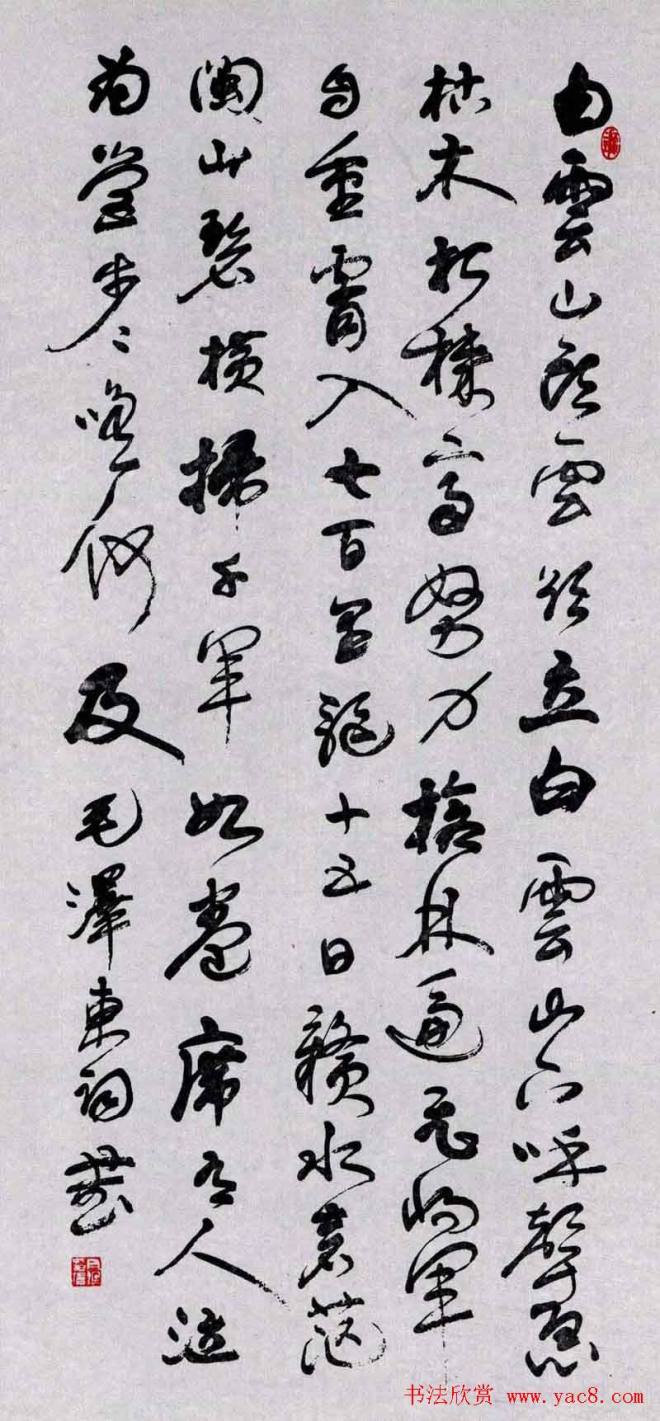 白雲山頭雲欲立白雲山下呼聲急
枯木朽株齊努力槍林逼飛將軍
自重霄入七百里驅十五日贛水蒼茫
閩山碧橫掃千軍如卷席有人泣
為營步〻嗟何及 毛澤東詞
书法欣赏 www.yac8.com